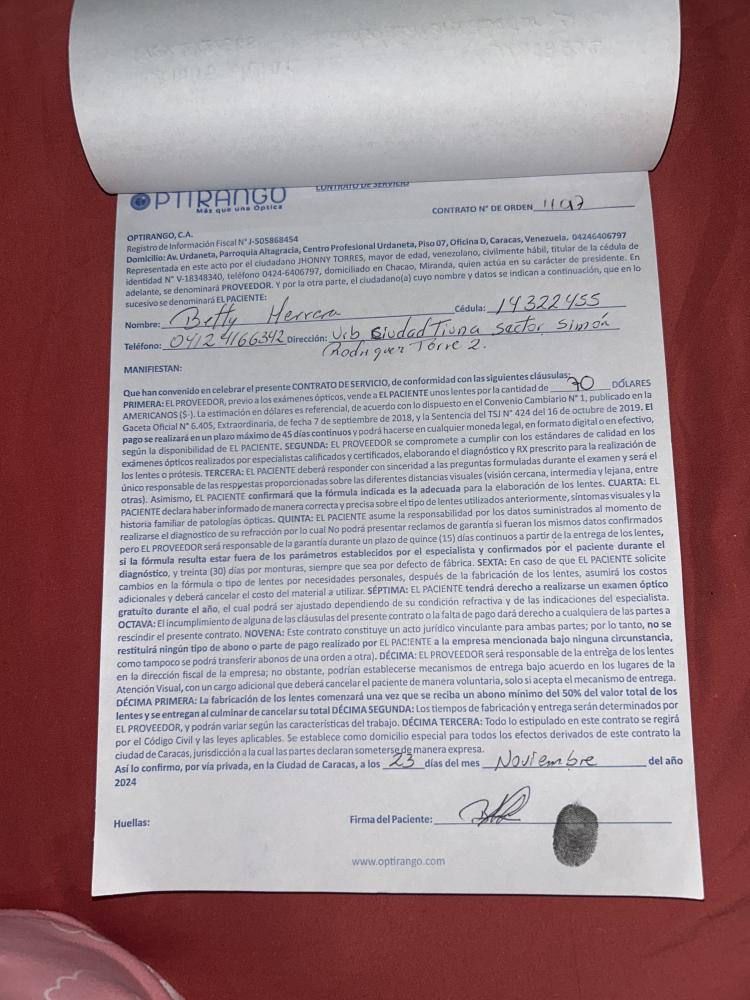 CONTRATO DE SERVICIO
OPTIRANGO
Más que una Óptica
CONTRATO N° DE ORDEN 1197
OPTIRANGO, C.A.
Registro de Información Fiscal N° J-505868454
Domicilio: Av. Urdaneta, Parroquia Altagracia, Centro Profesional Urdaneta, Piso 07, Oficina D, Caracas, Venezuela. 04246406797
Representada en este acto por el ciudadano JHONNY TORRES, mayor de edad, venezolano, civilmente hábil, titular de la cédula de
identidad N° V-18348340, teléfono 0424-6406797, domiciliado en Chacao, Miranda, quien actúa en su carácter de presidente. En
adelante, se denominará PROVEEDOR. Y por la otra parte, el ciudadano(a) cuyo nombre y datos se indican a continuación, que en lo
sucesivo se denominará EL PACIENTE:
Nombre: Betty Herrera Cédula: 14322455
Teléfono: 04124166342 Dirección: Urb Ciudad Tiuna Sector Simón
Rodriguez Torre 2.
MANIFIESTAN:
Que han convenido en celebrar el presente CONTRATO DE SERVICIO, de conformidad con las siguientes cláusulas:
PRIMERA: EL PROVEEDOR, previo a los exámenes ópticos, vende a EL PACIENTE unos lentes por la cantidad de 70 DÓLARES
AMERICANOS ($-). La estimación en dólares es referencial, de acuerdo con lo dispuesto en el Convenio Cambiario N° 1, publicado en la
Gaceta Oficial N° 6.405, Extraordinaria, de fecha 7 de septiembre de 2018, y la Sentencia del TSJ N° 424 del 16 de octubre de 2019. El
pago se realizará en un plazo máximo de 45 días continuos y podrá hacerse en cualquier moneda legal, en formato digital o en efectivo,
según la disponibilidad de EL PACIENTE. SEGUNDA: EL PROVEEDOR se compromete a cumplir con los estándares de calidad en los
exámenes ópticos realizados por especialistas calificados y certificados, elaborando el diagnóstico y RX prescrito para la realización de
los lentes o prótesis. TERCERA: EL PACIENTE deberá responder con sinceridad a las preguntas formuladas durante el examen y será el
único responsable de las respuestas proporcionadas sobre las diferentes distancias visuales (visión cercana, intermedia y lejana, entre
otras). Asimismo, EL PACIENTE confirmará que la fórmula indicada es la adecuada para la elaboración de los lentes. CUARTA: EL
PACIENTE declara haber informado de manera correcta y precisa sobre el tipo de lentes utilizados anteriormente, síntomas visuales y la
historia familiar de patologías ópticas. QUINTA: EL PACIENTE asume la responsabilidad por los datos suministrados al momento de
realizarse el diagnostico de su refracción por lo cual No podrá presentar reclamos de garantía si fueran los mismos datos confirmados
pero EL PROVEEDOR será responsable de la garantía durante un plazo de quince (15) días continuos a partir de la entrega de los lentes,
si la fórmula resulta estar fuera de los parámetros establecidos por el especialista y confirmados por el paciente durante el
diagnóstico, y treinta (30) días por monturas, siempre que sea por defecto de fábrica. SEXTA: En caso de que EL PACIENTE solicite
cambios en la fórmula o tipo de lentes por necesidades personales, después de la fabricación de los lentes, asumirá los costos
adicionales y deberá cancelar el costo del material a utilizar. SÉPTIMA: EL PACIENTE tendrá derecho a realizarse un examen óptico
gratuito durante el año, el cual podrá ser ajustado dependiendo de su condición refractiva y de las indicaciones del especialista.
OCTAVA: El incumplimiento de alguna de las cláusulas del presente contrato o la falta de pago dará derecho a cualquiera de las partes a
rescindir el presente contrato. NOVENA: Este contrato constituye un acto jurídico vinculante para ambas partes; por lo tanto, no se
restituirá ningún tipo de abono o parte de pago realizado por EL PACIENTE a la empresa mencionada bajo ninguna circunstancia,
como tampoco se podrá transferir abonos de una orden a otra). DÉCIMA: EL PROVEEDOR será responsable de la entrega de los lentes
en la dirección fiscal de la empresa; no obstante, podrían establecerse mecanismos de entrega bajo acuerdo en los lugares de la
Atención Visual, con un cargo adicional que deberá cancelar el paciente de manera voluntaria, solo si acepta el mecanismo de entrega.
DÉCIMA PRIMERA: La fabricación de los lentes comenzará una vez que se reciba un abono mínimo del 50% del valor total de los
lentes y se entregan al culminar de cancelar su total DÉCIMA SEGUNDA: Los tiempos de fabricación y entrega serán determinados por
EL PROVEEDOR, y podrán variar según las características del trabajo. DÉCIMA TERCERA: Todo lo estipulado en este contrato se regirá
por el Código Civil y las leyes aplicables. Se establece como domicilio especial para todos los efectos derivados de este contrato la
ciudad de Caracas, jurisdicción a la cual las partes declaran someterse de manera expresa.
Así lo confirmo, por vía privada, en la Ciudad de Caracas, a los 23 días del mes Noviembre del año
2024
Huellas: Firma del Paciente:
www.optirango.com